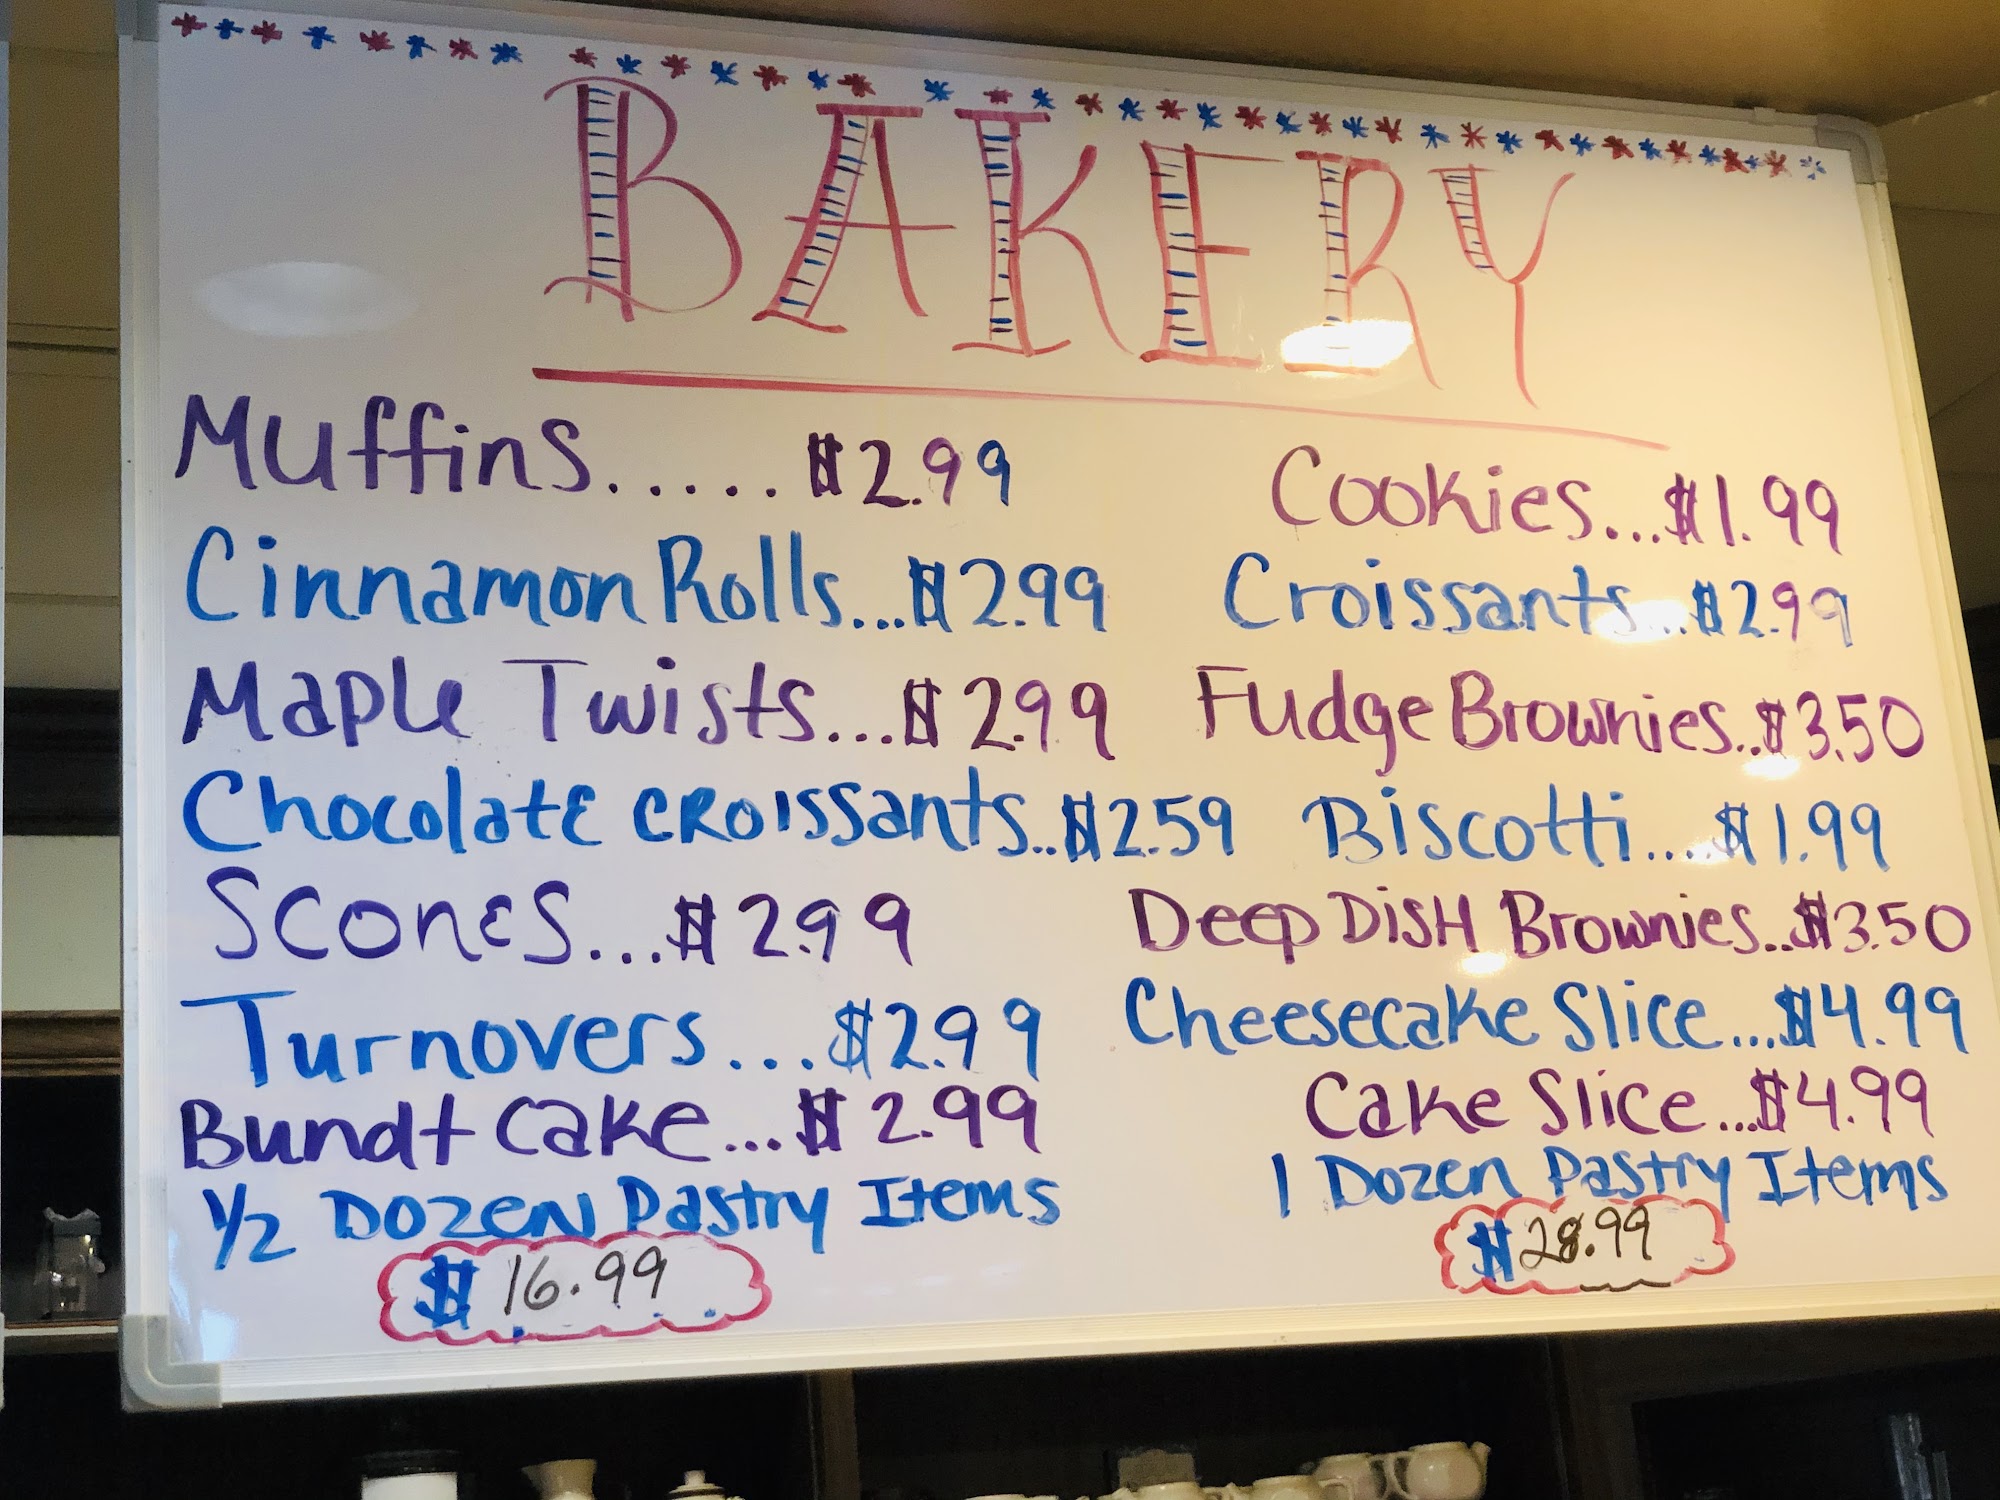 BAKERY
Muffins.....$2.99
Cinnamon Rolls...$2.99
Maple Twists...$2.99
Chocolate croissants..$2.59
Scones...$2.99
Turnovers...$2.99
Bundt cake...$2.99
1/2 Dozen Pastry Items
$16.99
Cookies...$1.99
Croissants...$2.99
Fudge Brownies..$3.50
Biscotti....$1.99
Deep DisH Brownies..$3.50
Cheesecake Slice...$4.99
Cake Slice...$4.99
1 Dozen Pastry Items
$28.99